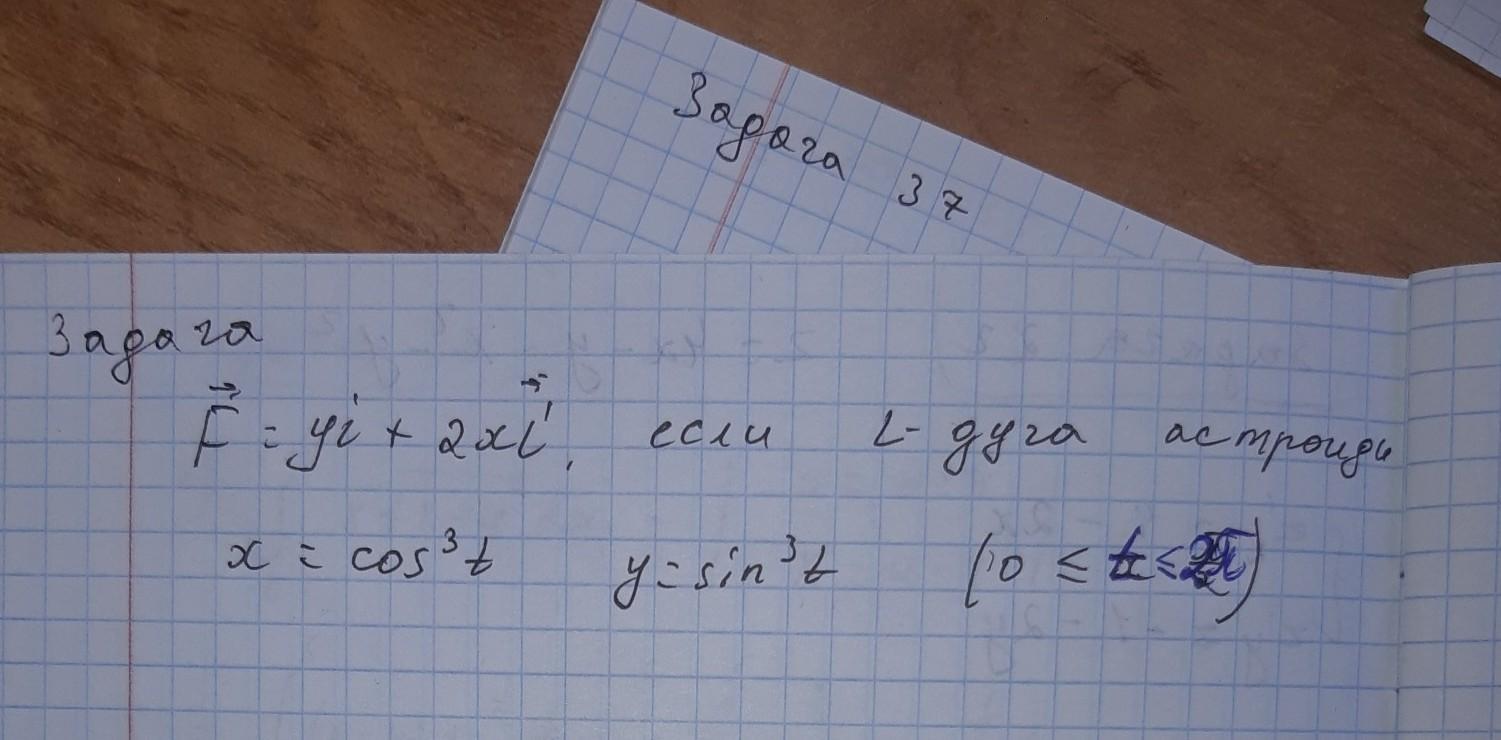 Задача 37
Задача
F⃗ = yi + 2xi⃗, если L - дуга астроиды
x = cos³t y = sin³t (0 ≤ t ≤ )